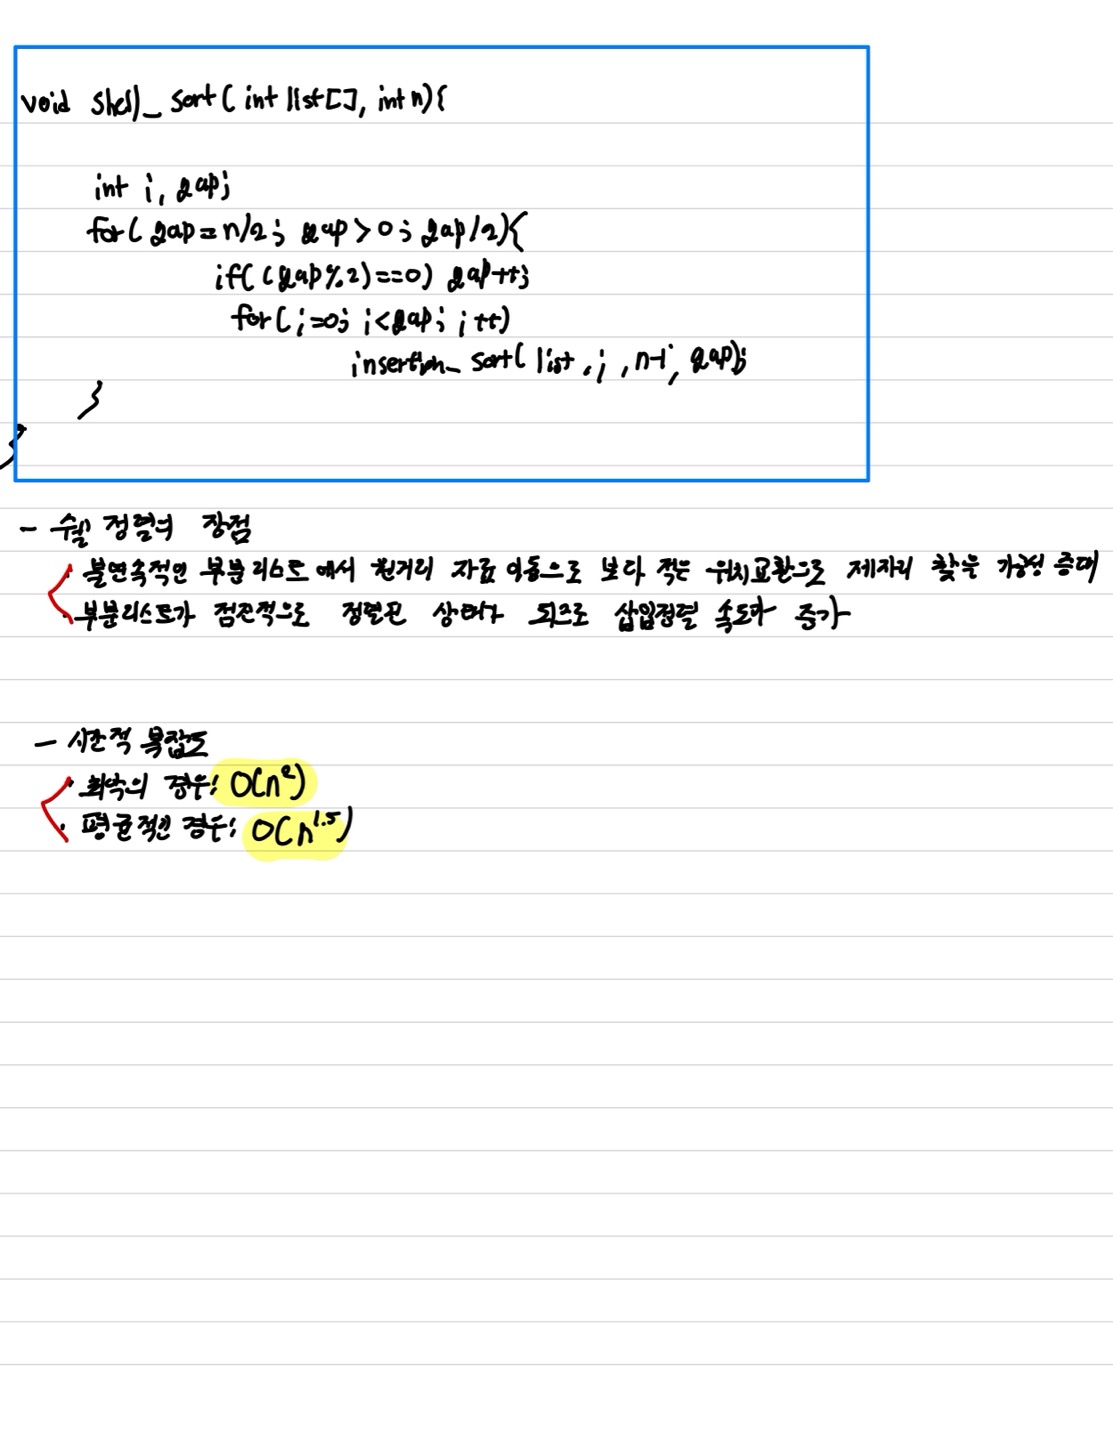 void shell_sort(int list[], int n){
int i, gap;
for(gap=n/2; gap>0; gap/2){
if((gap%2)==0) gap++;
for(i=0; i<gap; i++)
insertion_sort(list, i, n-1, gap);
}
}
- 쉘 정렬의 장점
· 불연속적인 부분리스트에서 원거리 자료 이동으로 보다 적은 위치교환으로 제자리 찾을 가능성 증대
· 부분리스트가 점진적으로 정렬된 상태가 되므로 삽입정렬 속도가 증가
- 시간적 복잡도
· 최악의 경우: O(n²)
· 평균적인 경우: O(n^1.5)